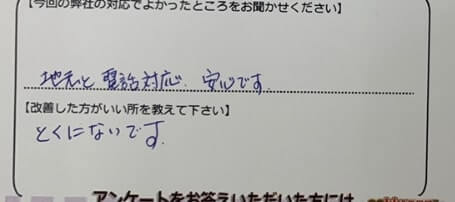 【今回の弊社の対応でよかったところをお聞かせください】
地元と電話対応、安心です。
【改善した方がいい所を教えて下さい】
とくにないです。
アンケートをお答えいただいた方には